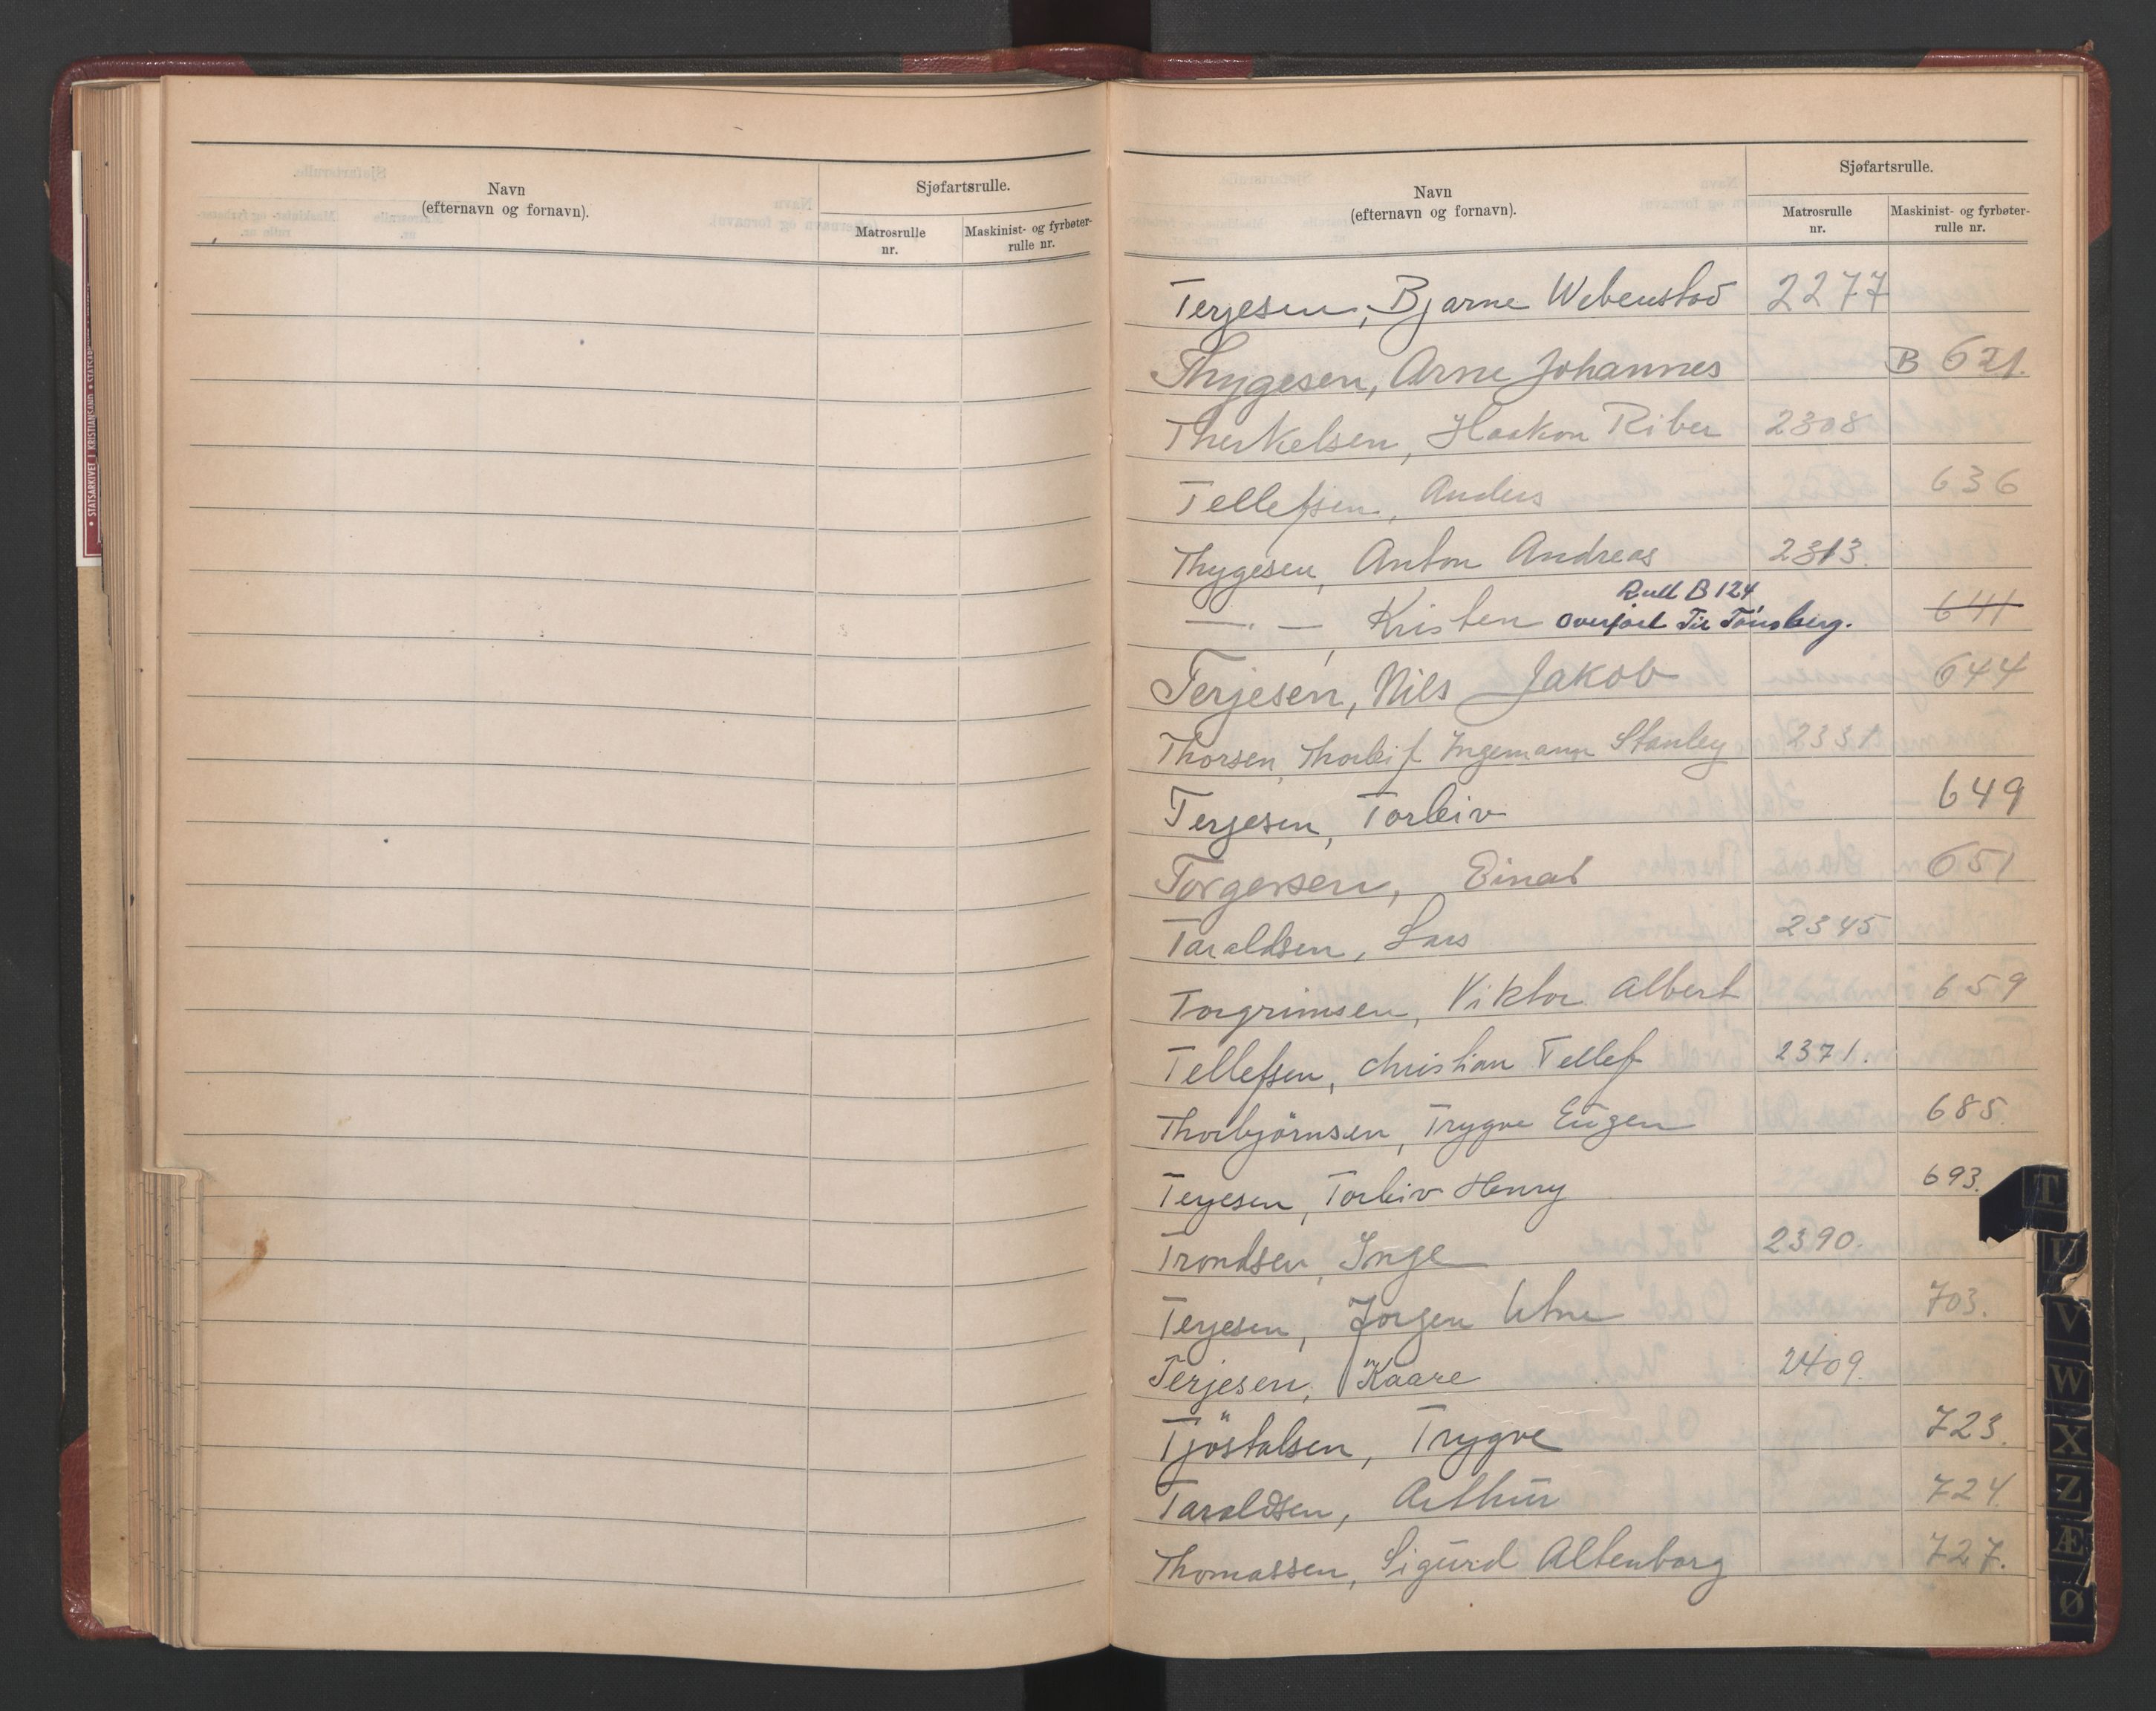 Navn
(efternavn og fornavn).
Sjøfartsrulle.
Matrosrulle
nr.
Maskinist- og fyrbøter-
rulle nr.
Navn
(efternavn og fornavn).
Sjøfartsrulle.
Matrosrulle
nr.
Maskinist- og fyrbøter-
rulle nr.
Terjesen, Bjarne Webenstad 2277
Thygesen, Arne Johannes B 621.
Therkelsen, Haakon Riber 2308
Tellefsen, Anders 636
Thygesen, Anton Andreas 2313.
Rull B 124
— " —, Kristen Overført Til Tønsberg. 641
Terjesen, Nils Jakob 644
Thorsen, Thorleif Ingemann Stanley 2331
Terjesen, Torleiv 649
Torgersen, Einar 651
Taraldsen, Lars 2345
Torgrimsen, Viktor Albert 659
Tellefsen, Christian Tellef 2371.
Thorbjörnsen, Trygve Eugen 685.
Terjesen, Torleiv Henry 693.
Trondsen, Inge 2390.
Terjesen, Jörgen 703.
Terjesen, Kaare 2409.
Tjöstalsen, Trygve 723.
Taraldsen, Arthur 724
Thomassen, Sigurd Altenborg 727.
T
U
V
W
X
Z
Æ
Ø
• STATSARKIVET I KRISTIANSAND •